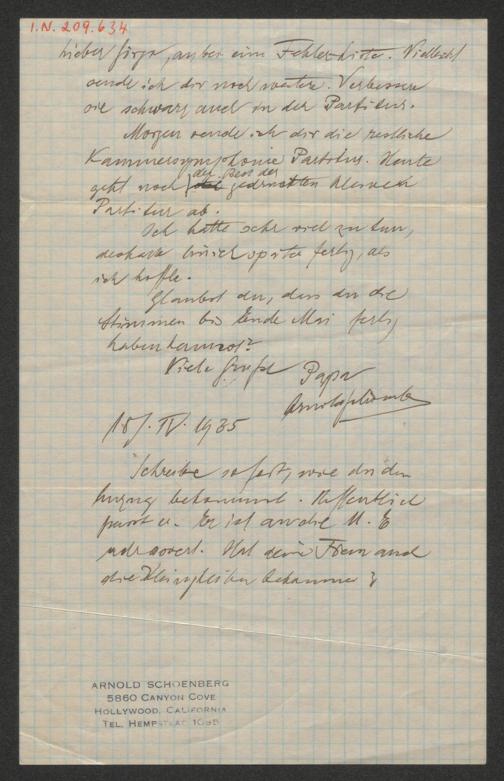 I.N. 209.634
Lieber Görgi, anbei eine Fehlerliste. Vielleicht
sende ich dir noch weitere. Verbessere
sie schwarz auch in der Partitur.
Morgen sende ich dir die restliche
Kammersymphonie Partitur. Heute
geht noch der Rest der gedruckten kleinen
Partitur ab.
Ich hatte sehr viel zu tun,
deshalb bin ich später fertig, als
ich hoffte.
Glaubst du, dass du die
Stimmen bis Ende Mai fertig
haben kannst?
Viele Grüsse Papa
Arnold Schoenberg
15/. IV. 1935
Schreibe sofort, wie du den
Anzug bekommst. Hoffentlich
passt er. Er ist an die U. E
adressiert. Hat deine Frau auch
die Kleinigkeiten bekommen?
ARNOLD SCHOENBERG
5860 CANYON COVE
HOLLYWOOD, CALIFORNIA
TEL. HEMPSTEAD 1095